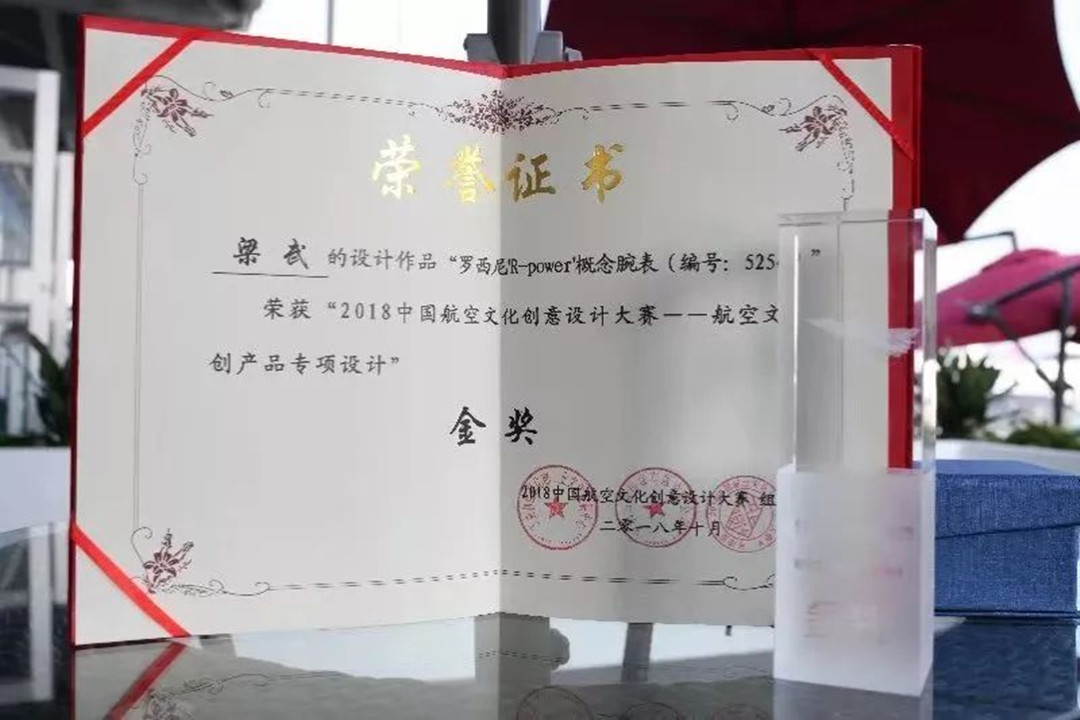 荣誉证书
梁武 的设计作品“罗西尼'R-power'概念腕表（编号：525 ”
荣获“2018中国航空文化创意设计大赛——航空文
创产品专项设计”
金奖
2018中国航空文化创意设计大赛 组
二零一八年十月